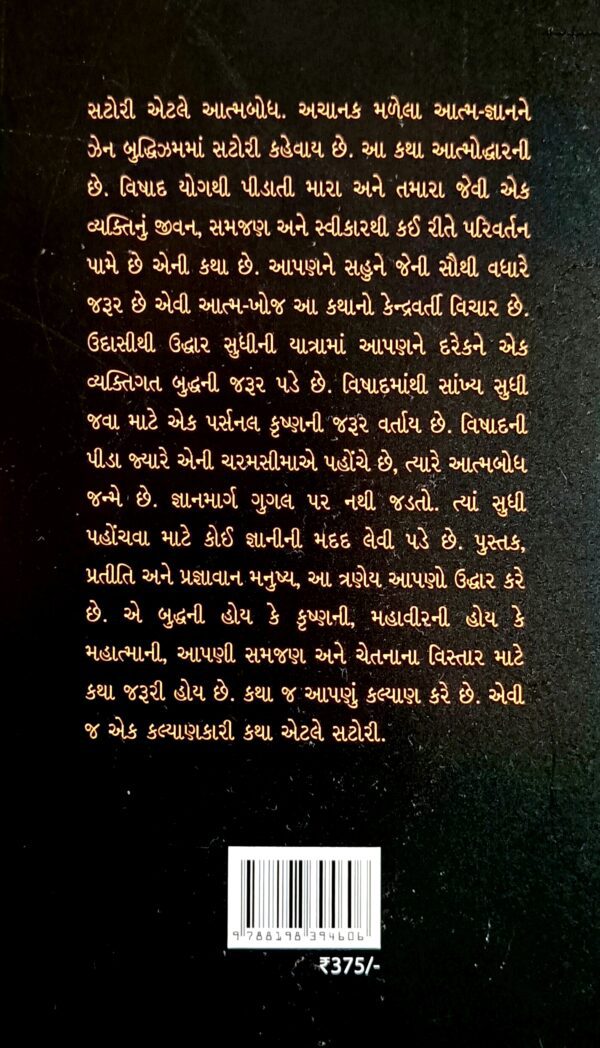 સટોરી એટલે આત્મબોધ. અચાનક મળેલા આત્મ-જ્ઞાનને
ઝેન બુદ્ધિઝમમાં સટોરી કહેવાય છે. આ કથા આત્મોદ્ધારની
છે. વિષાદ યોગથી પીડાતી મારા અને તમારા જેવી એક
વ્યક્તિનું જીવન, સમજણ અને સ્વીકારથી કઈ રીતે પરિવર્તન
પામે છે એની કથા છે. આપણને સહુને જેની સૌથી વધારે
જરૂર છે એવી આત્મ-ખોજ આ કથાનો કેન્દ્રવર્તી વિચાર છે.
ઉદાસીથી ઉદ્ધાર સુધીની યાત્રામાં આપણને દરેકને એક
વ્યક્તિગત બુદ્ધની જરૂર પડે છે. વિષાદમાંથી સાંખ્ય સુધી
જવા માટે એક પર્સનલ કૃષ્ણની જરૂર વર્તાય છે. વિષાદની
પીડા જ્યારે એની ચરમસીમાએ પહોંચે છે, ત્યારે આત્મબોધ
જન્મે છે. જ્ઞાનમાર્ગ ગુગલ પર નથી જડતો. ત્યાં સુધી
પહોંચવા માટે કોઈ જ્ઞાનીની મદદ લેવી પડે છે. પુસ્તક,
પ્રતીતિ અને પ્રજ્ઞાવાન મનુષ્ય, આ ત્રણેય આપણો ઉદ્ધાર કરે
છે. એ બુદ્ધની હોય કે કૃષ્ણની, મહાવીરની હોય કે
મહાત્માની, આપણી સમજણ અને ચેતનાના વિસ્તાર માટે
કથા જરૂરી હોય છે. કથા જ આપણું કલ્યાણ કરે છે. એવી
જ એક કલ્યાણકારી કથા એટલે સટોરી.
9 788198 394606
₹375/-